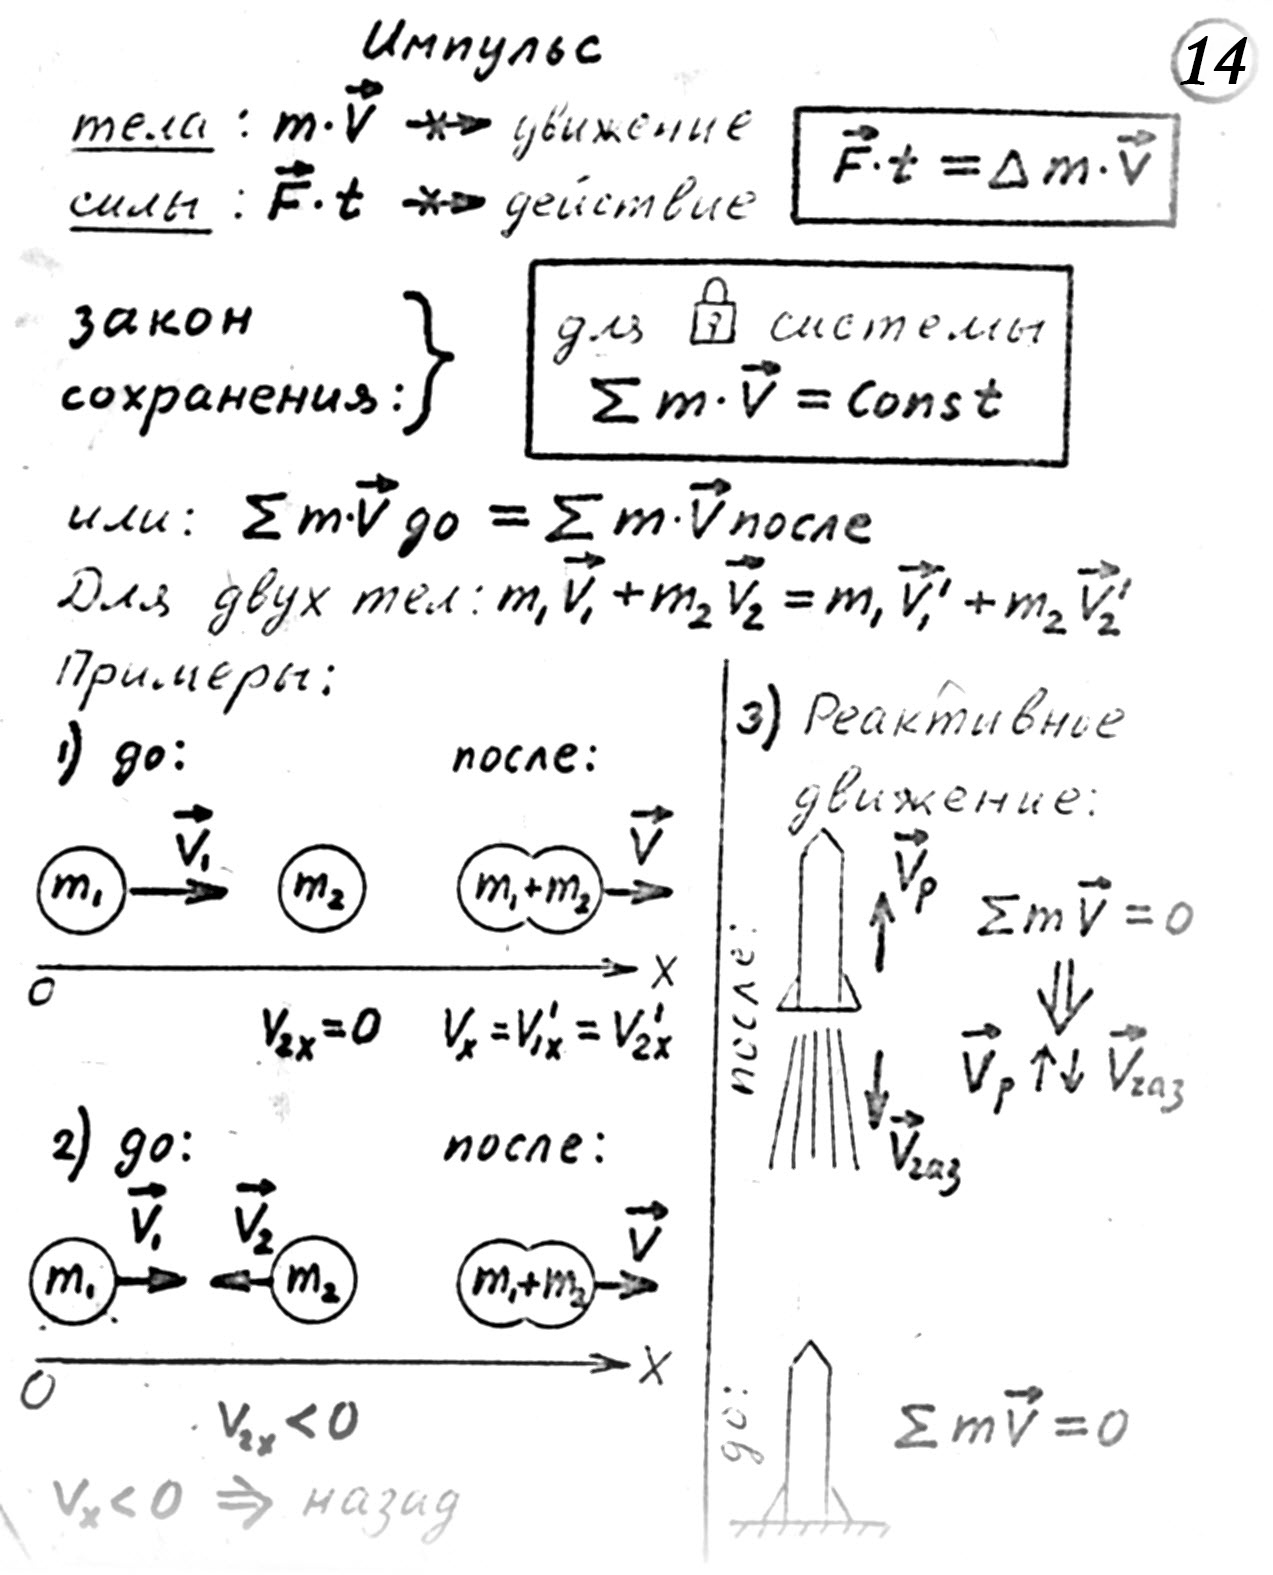 Импульс
14
тела: m·V⃗ ⇸ движение
силы: F⃗·t ⇸ действие
F⃗·t = Δ m·V⃗
закон
сохранения:
для системы
Σ m·V⃗ = Const
или: Σ m·V⃗ до = Σ m·V⃗ после
Для двух тел: m₁V⃗₁ + m₂V⃗₂ = m₁V⃗₁' + m₂V⃗₂'
Примеры:
1) до: после:
V⃗₁ V⃗
m₁ m₂ m₁+m₂
0 X
V₂ₓ = 0 Vₓ = V₁ₓ' = V₂ₓ'
2) до: после:
V⃗₁ V⃗₂ V⃗
m₁ m₂ m₁+m₂
0 X
V₂ₓ < 0
Vₓ < 0 ⇒ назад
3) Реактивное
движение:
после:
V⃗р
Σ m V⃗ = 0
⇓
V⃗р ↑↓ V⃗газ
V⃗газ
до:
Σ m V⃗ = 0